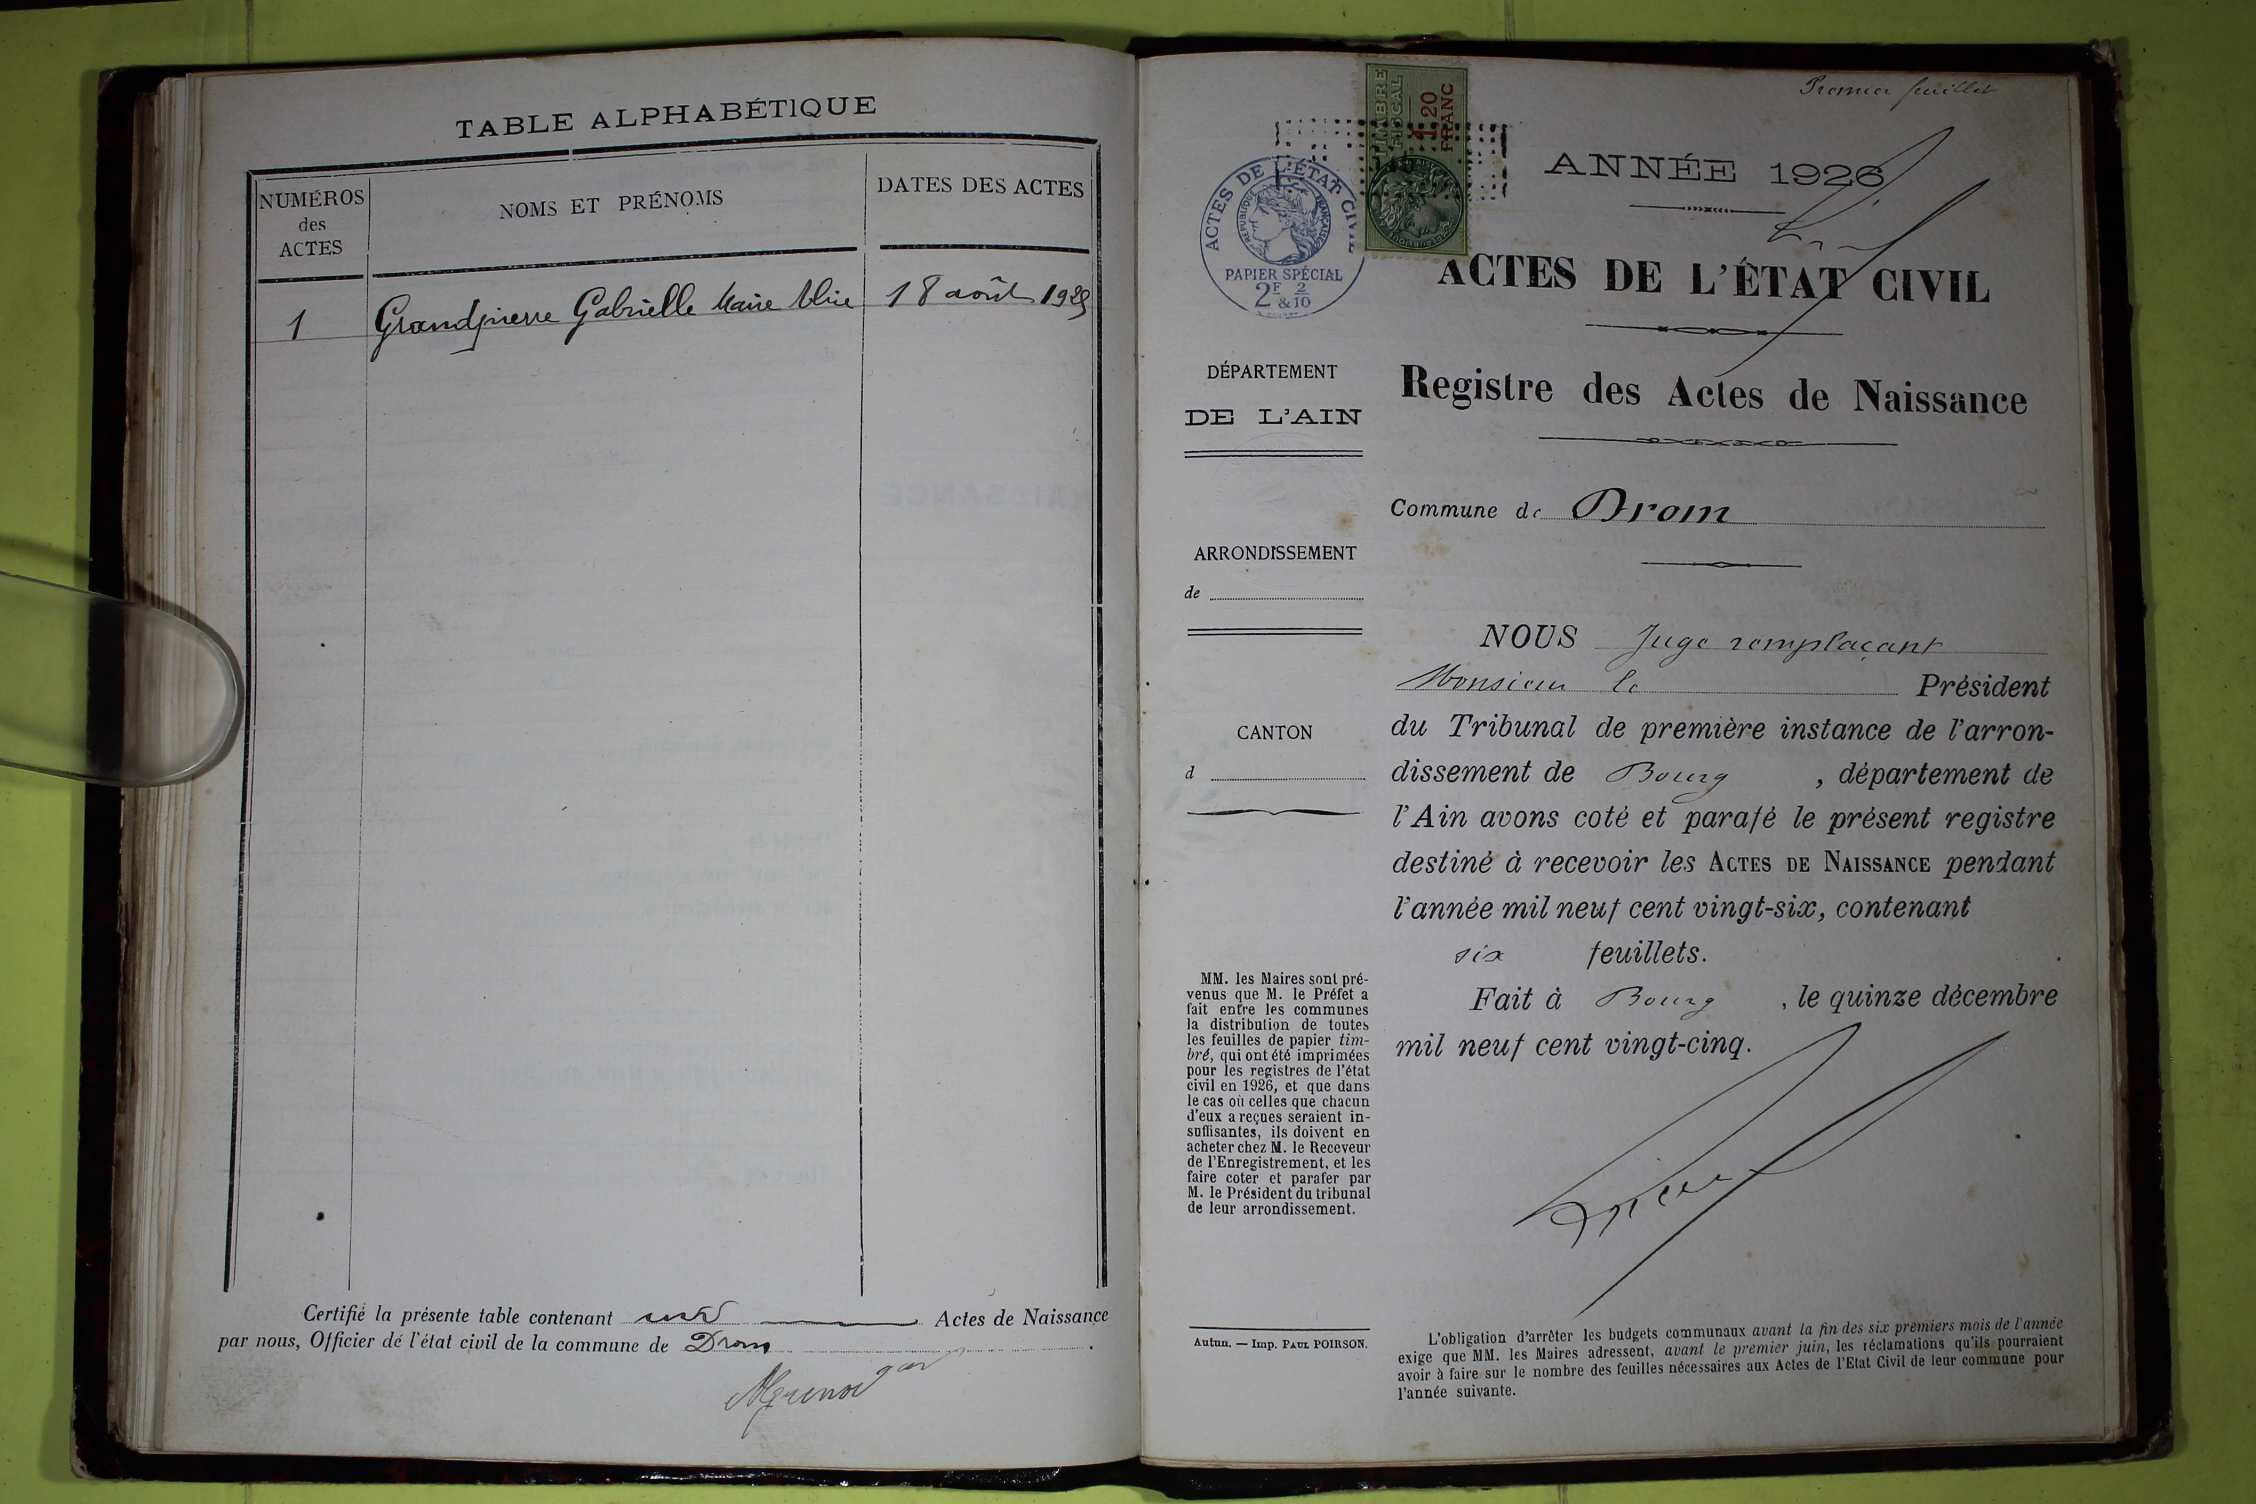 TABLE ALPHABÉTIQUE
NUMÉROS
des
ACTES
NOMS ET PRÉNOMS
DATES DES ACTES
1 Grandpierre Gabrielle Marie 18 août 1925
Certifié la présente table contenant Actes de Naissance
par nous, Officier de l'état civil de la commune de Drom .
Premier feuillet
TIMBRE
FISCAL
1.20
FRANC
ANNÉE 1926
ACTES DE L'ÉTAT CIVIL
RÉPUBLIQUE FRANÇAISE
PAPIER SPÉCIAL
2F 2
&10
ACTES DE L'ÉTAT CIVIL
Registre des Actes de Naissance
DÉPARTEMENT
DE L'AIN
Commune de Drom
ARRONDISSEMENT
de
CANTON
d
NOUS Juge remplaçant
Monsieur le Président
du Tribunal de première instance de l'arron-
dissement de Bourg , département de
l'Ain avons coté et parafé le présent registre
destiné à recevoir les ACTES DE NAISSANCE pendant
l'année mil neuf cent vingt-six, contenant
six feuillets.
Fait à Bourg , le quinze décembre
mil neuf cent vingt-cinq.
MM. les Maires sont pré-
venus que M. le Préfet a
fait entre les communes
la distribution de toutes
les feuilles de papier tim-
bré, qui ont été imprimées
pour les registres de l'état
civil en 1926, et que dans
le cas où celles que chacun
d'eux a reçues seraient in-
suffisantes, ils doivent en
acheter chez M. le Receveur
de l'Enregistrement, et les
faire coter et parafer par
M. le Président du tribunal
de leur arrondissement.
Autun. — Imp. PAUL POIRSON.
L'obligation d'arrêter les budgets communaux avant la fin des six premiers mois de l'année
exige que MM. les Maires adressent, avant le premier juin, les réclamations qu'ils pourraient
avoir à faire sur le nombre des feuilles nécessaires aux Actes de l'Etat Civil de leur commune pour
l'année suivante.